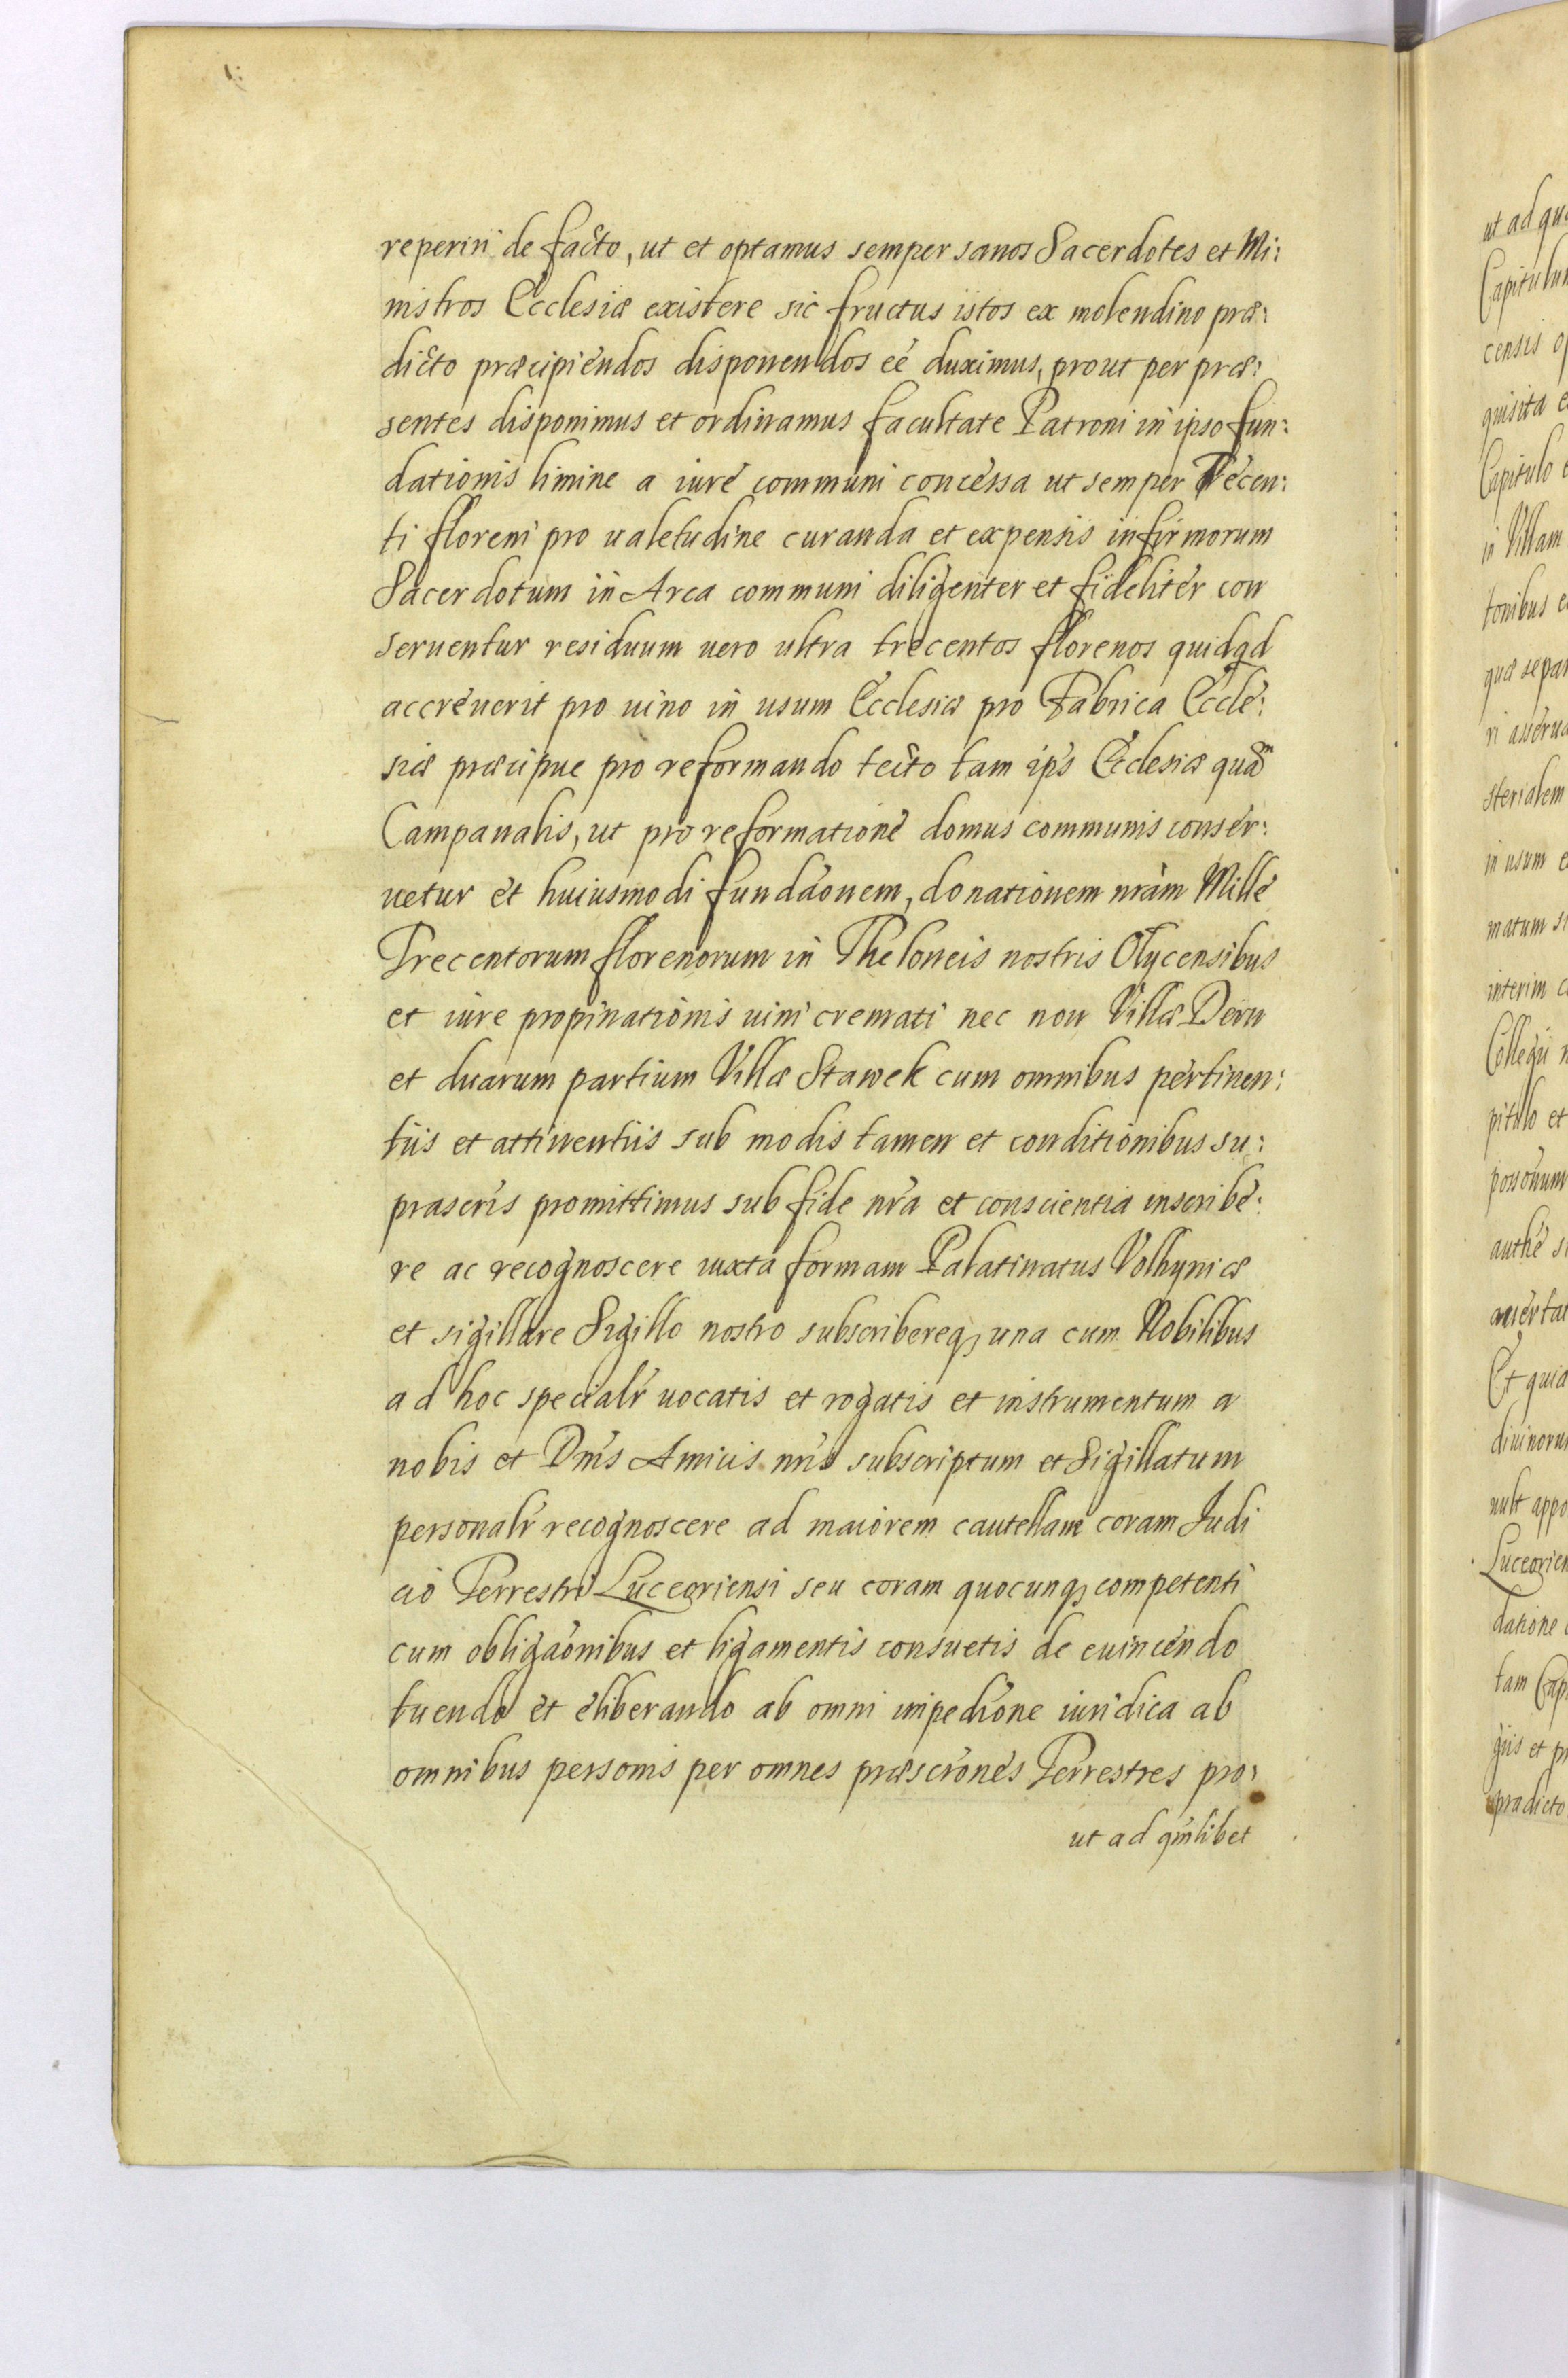 reperiri de facto, ut et optamus semper sanos Sacerdotes et Mi:
nistros Ecclesiæ existere sic fructus istos ex molendino præ:
dicto præcipiendos disponendos eé duximus, prout per præ:
sentes disponimus et ordinamus facultate Patroni in ipso fun:
dationis limine a iure communi concessa ut semper Trecen:
ti floreni pro ualetudine curanda et expensis infirmorum
Sacerdotum in Arca communi diligenter et fideliter con
seruentur residuum uero ultra trecentos florenos quidqd
accreuerit pro uino in usum Ecclesiæ pro Fabrica Eccle:
siæ præcipue pro reformando tecto tam ip̃s Ecclesiæ quã
Campanalis, ut pro reformatione domus communis conser:
uetur et huiusmodi fundãonem, donationem nrãm Mille
Trecentorum florenorum in Theloneis nostris Olycensibus
et iure propinationis uini cremati nec non Villæ Dern
et duarum partium Villæ Stawek cum omnibus pertinen:
tiis et attinentiis sub modis tamen et conditionibus su:
prascris̃ promittimus sub fide nr̃a et conscientia inscribe:
re ac recognoscere iuxta formam Palatinatus Volhyniæ
et sigillare Sigillo nostro subscribereq; una cum Nobilibus
ad hoc specialr̃ uocatis et rogatis et instrumentum a
nobis et Dnĩs Amicis nrĩs subscriptum et Sigillatum
personalr̃ recognoscere ad maiorem cautellam coram Judi
cio Terrestri Luceoriensi seu coram quocunq; competenti
cum obligãonibus et ligamentis consuetis de euincendo
tuendo et eliberando ab omni impedĩone iuridica ab
omnibus personis per omnes præscrõnes Terrestres pro:
ut ad qm̃libet
ut ad qu
Capitulum
censis
quisita
Capitulo
in Villam
tonibus
quæ separ
ri asserua
sterialem
in usum
matum
interim
Collegii
pitulo et
possõnum
authẽ
Et quia
diuinorum
uult appo
Luceorien
datione
tam Cap
giis et
prædicto